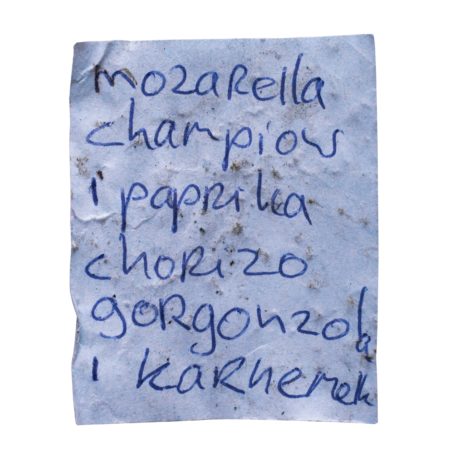 mozarella
champions
1 paprika
chorizo
gorgonzola
1 karnemelk